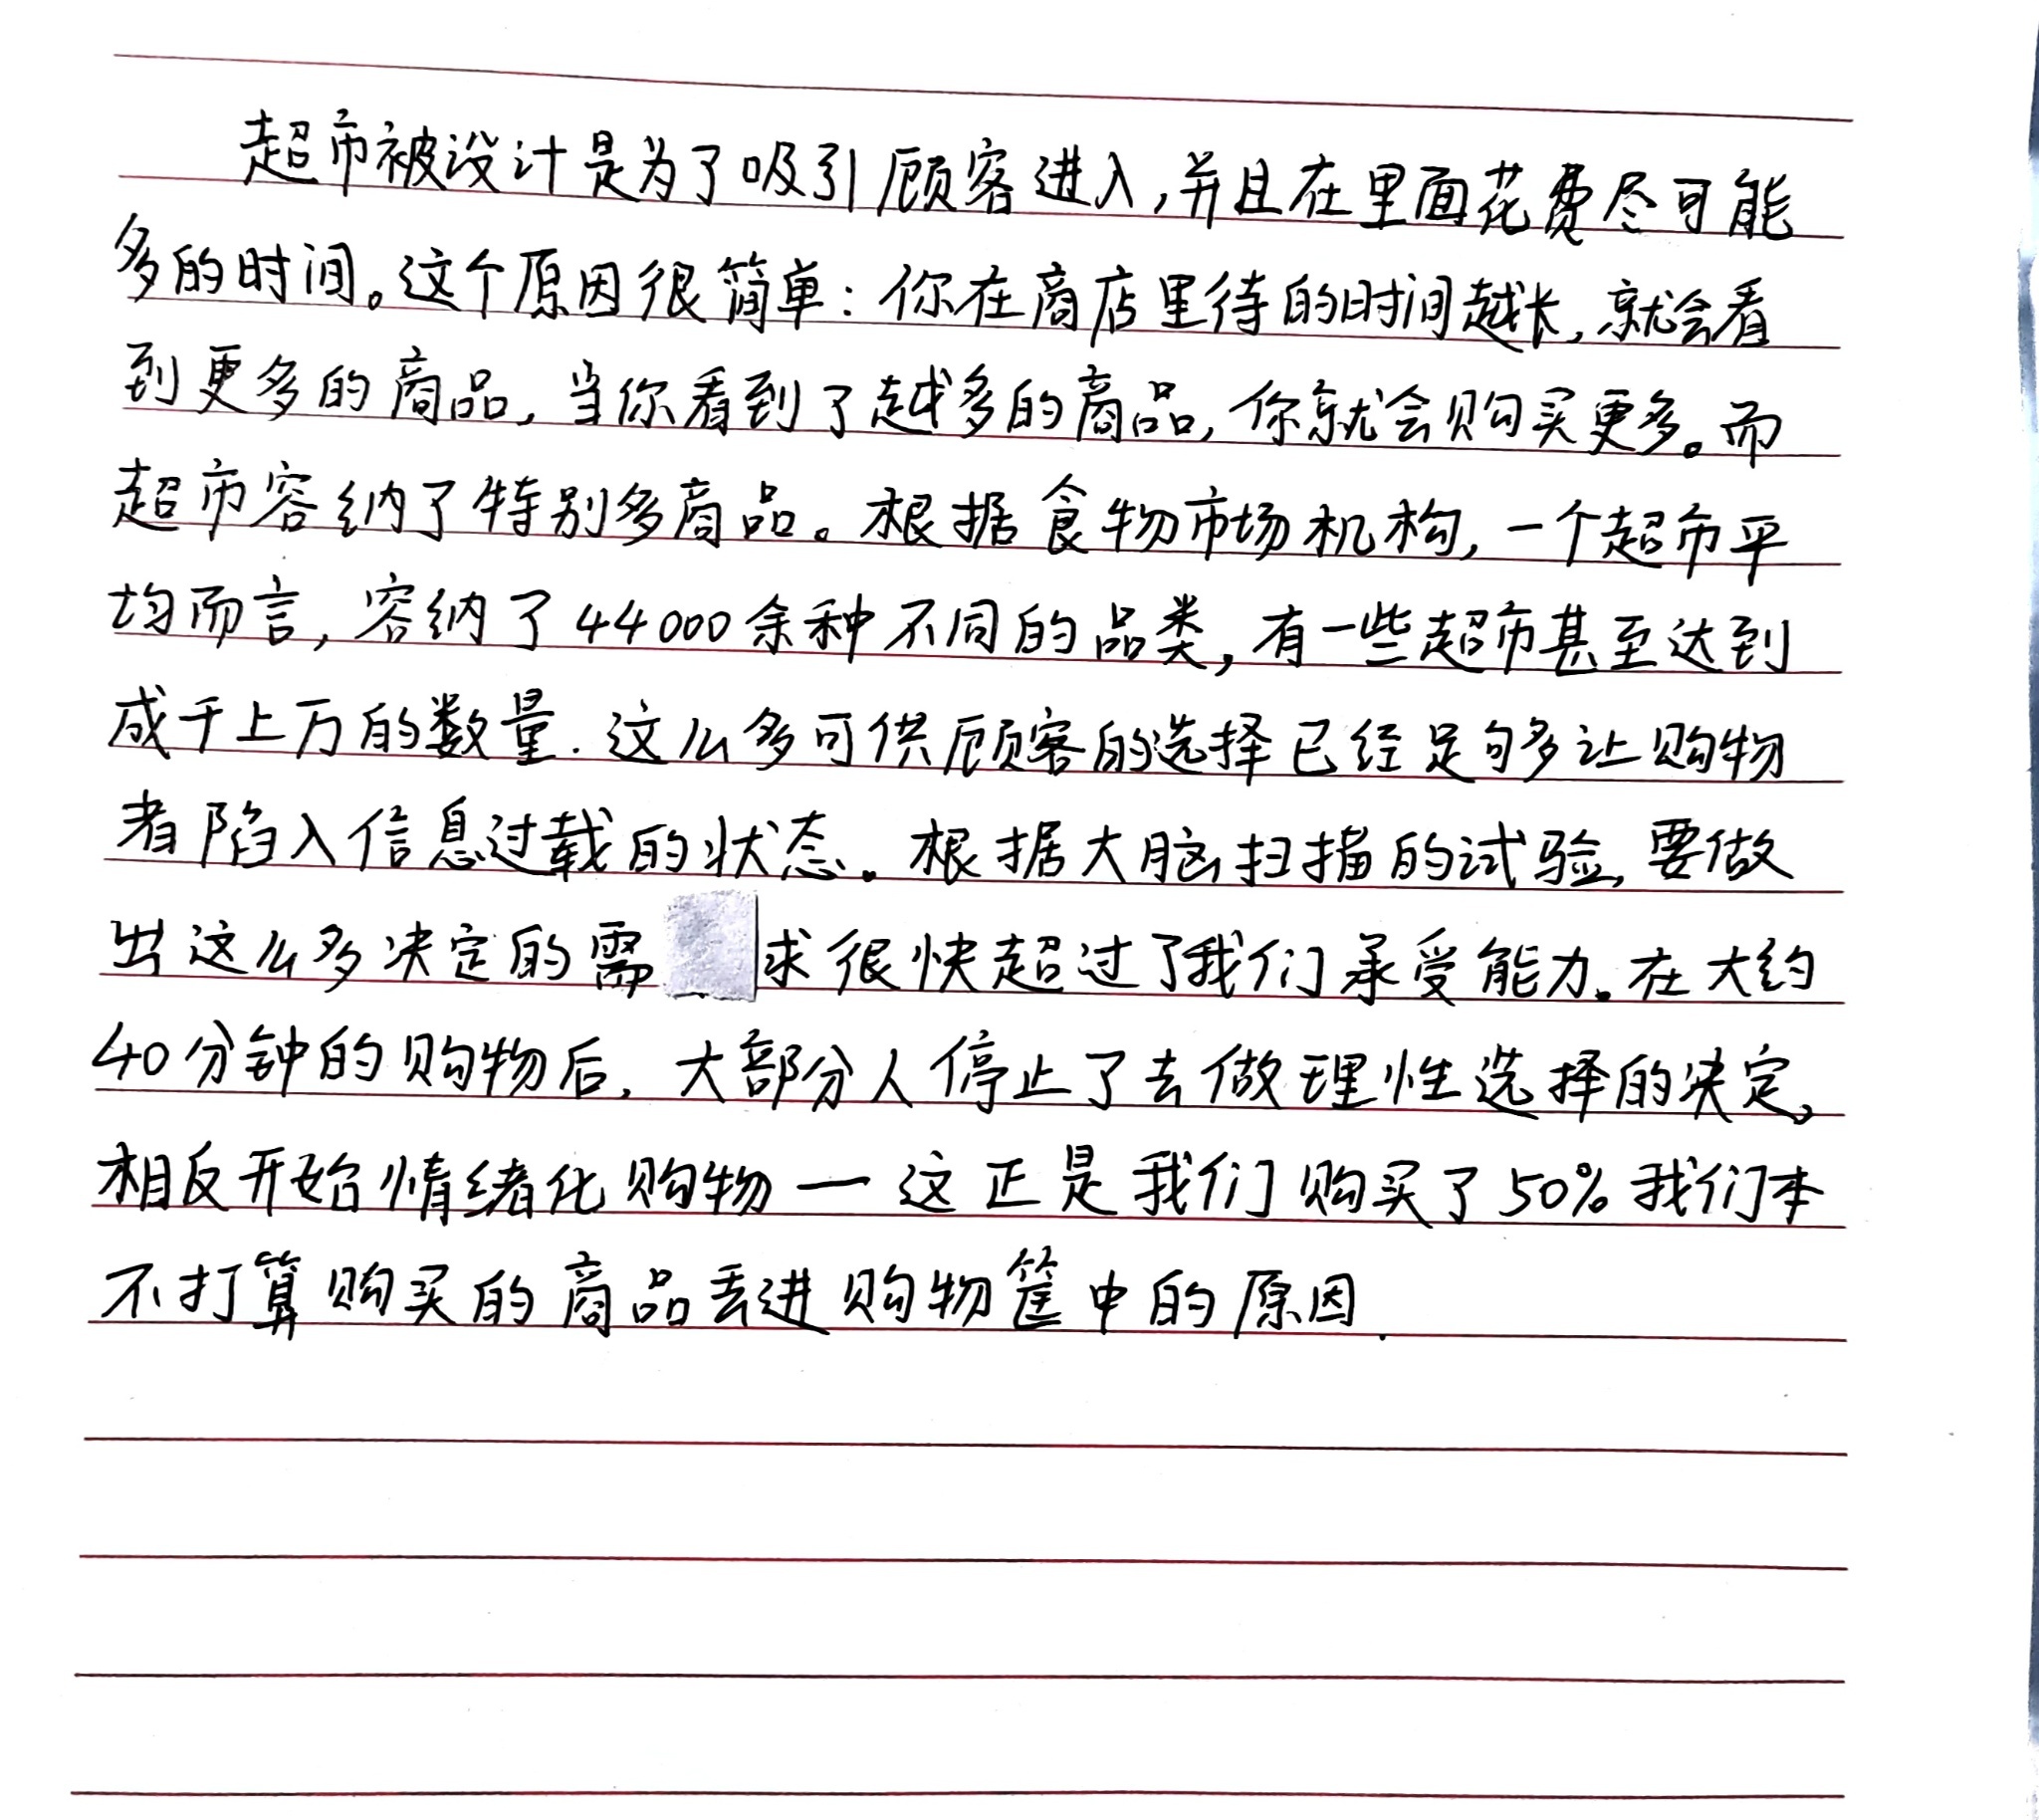 超市被设计是为了吸引顾客进入,并且在里面花费尽可能
多的时间。这个原因很简单：你在商店里待的时间越长,就会看
到更多的商品,当你看到了越多的商品,你就会购买更多。而
超市容纳了特别多商品。根据食物市场机构,一个超市平
均而言,容纳了44000余种不同的品类,有一些超市甚至达到
成千上万的数量.这么多可供顾客的选择已经足够多让购物
者陷入信息过载的状态。根据大脑扫描的试验,要做
出这么多决定的需求很快超过了我们承受能力。在大约
40分钟的购物后,大部分人停止了去做理性选择的决定,
相反开始情绪化购物一这正是我们购买了50%我们本
不打算购买的商品丢进购物筐中的原因.